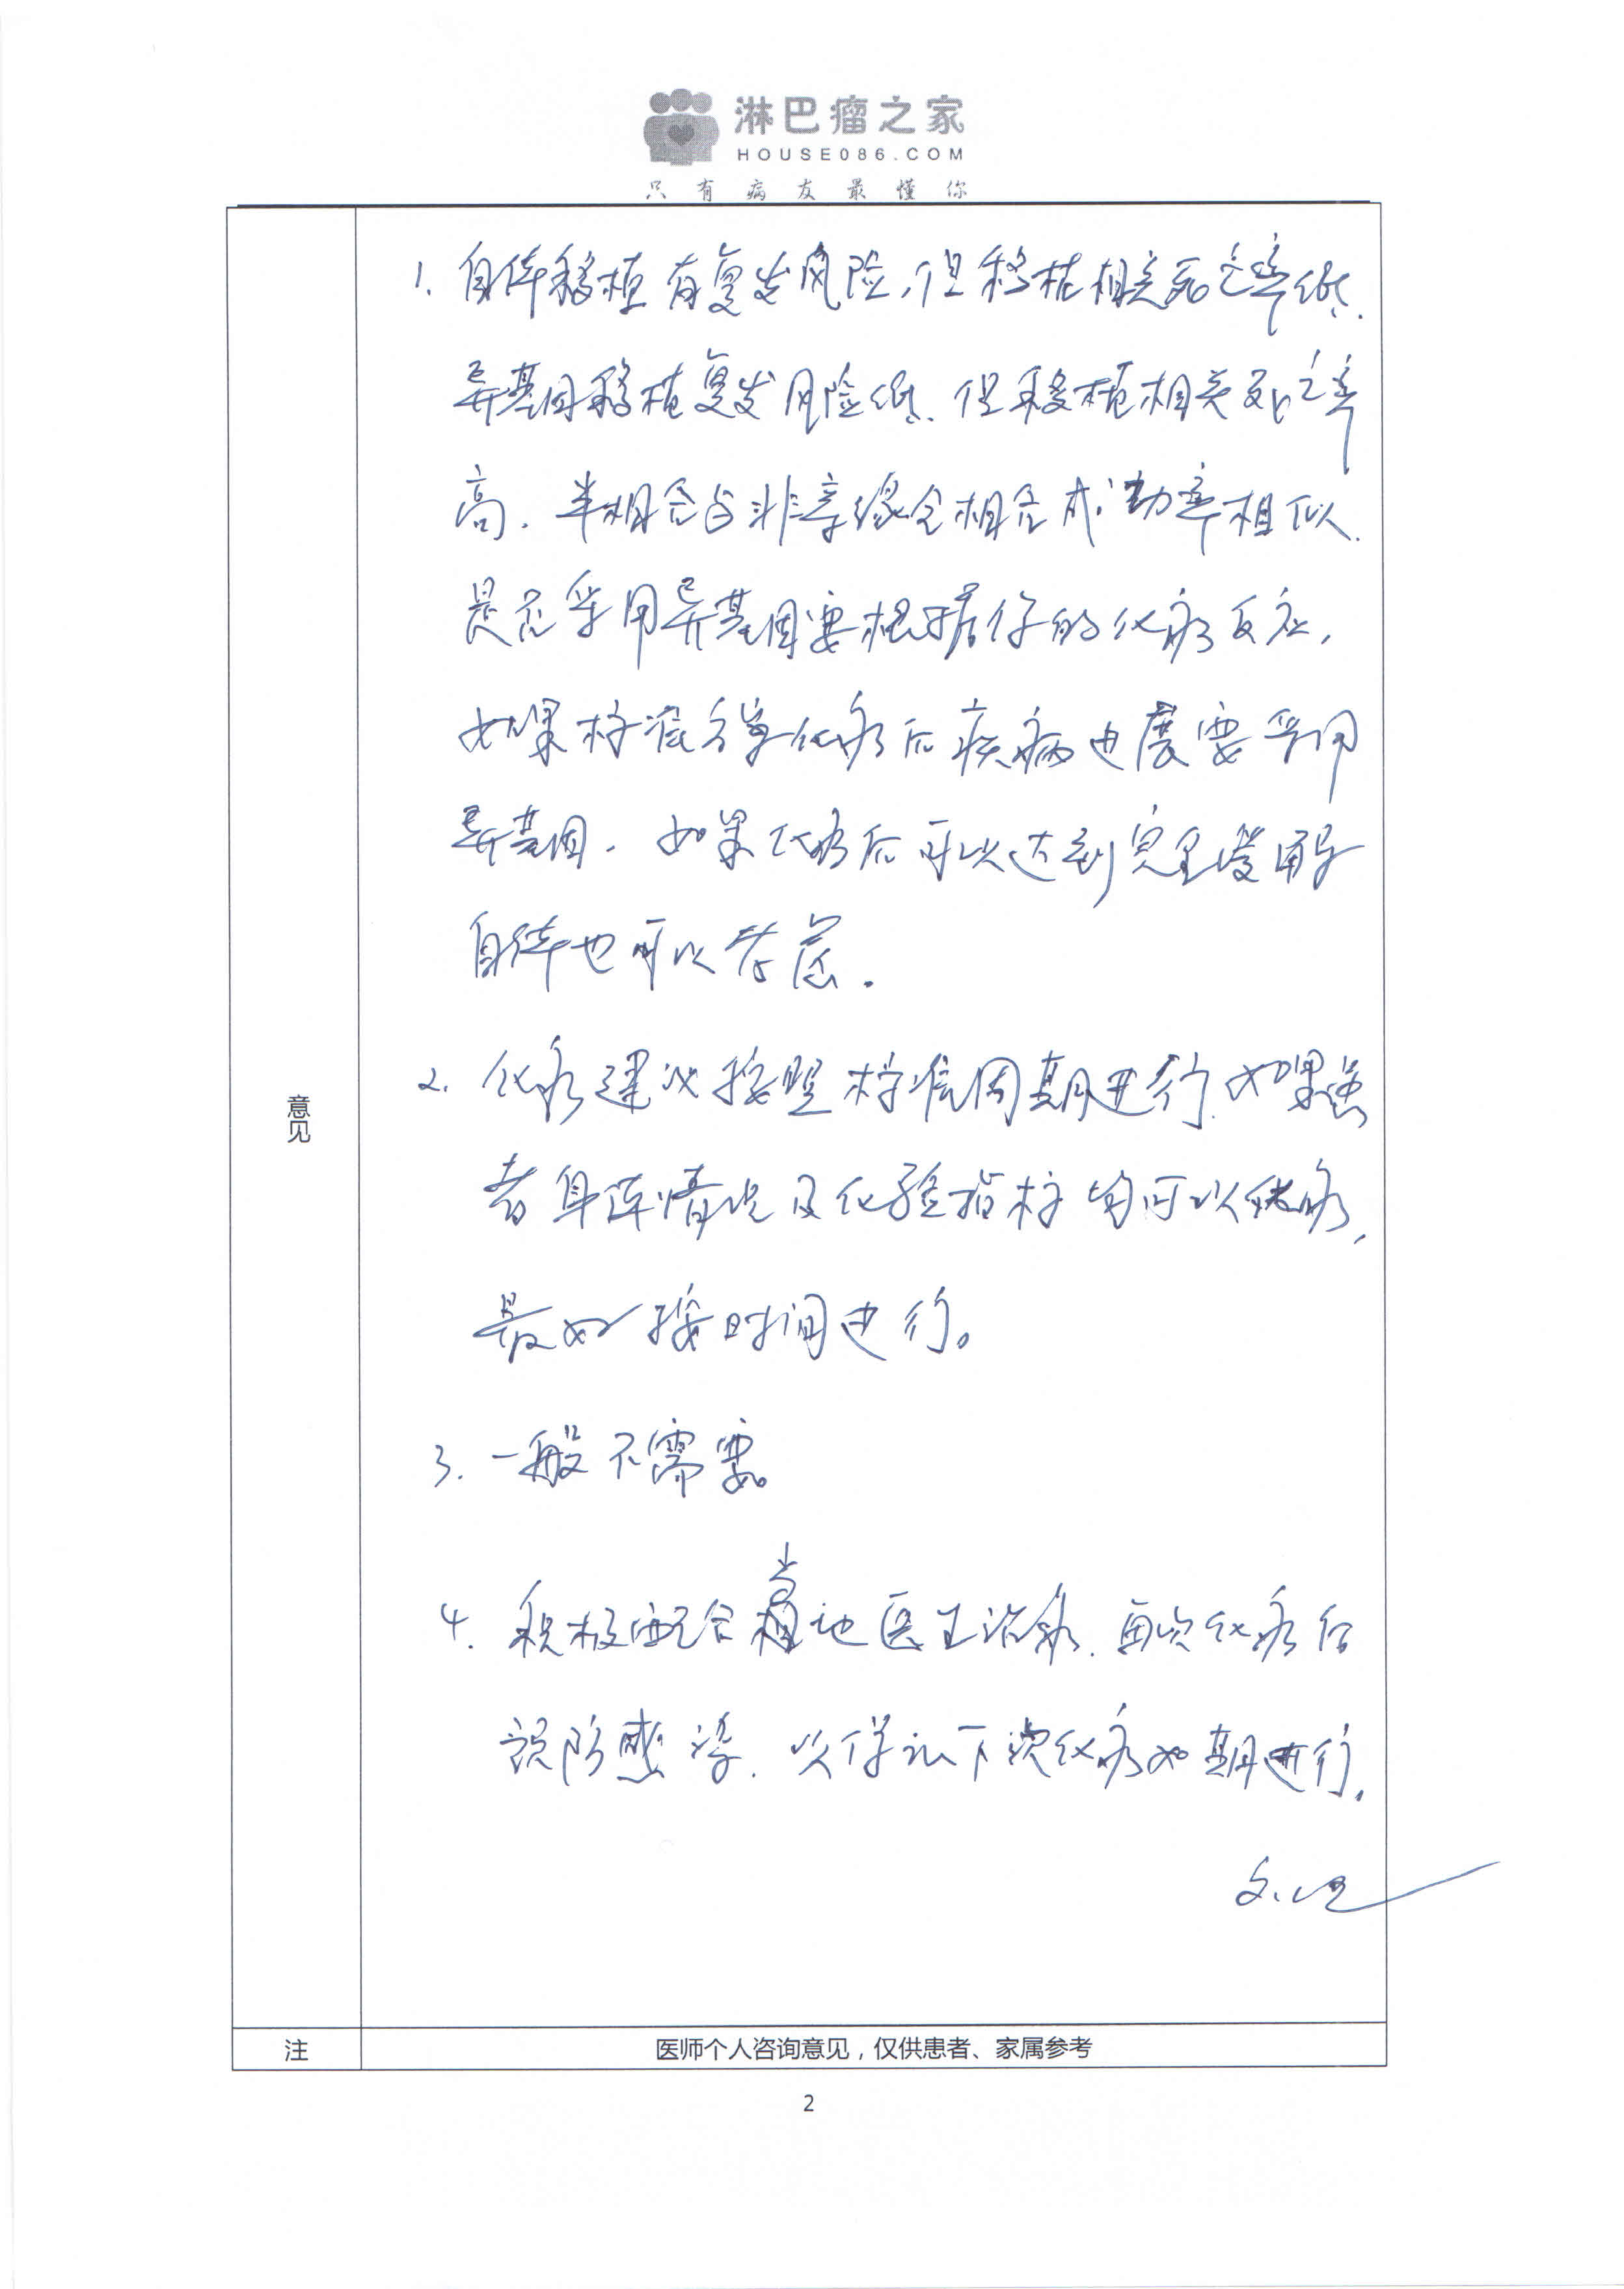 淋巴瘤之家
HOUSE086.COM
只有病友最懂你
1. 自体移植有复发风险,但移植相关死亡率低.
异基因移植复发风险低.但移植相关死亡率
高.半相合与非亲缘全相合成功率相似.
是否采用异基因要根据你的化疗反应,
如果标准方案化疗后疾病进展要采用
异基因.如果化疗后可以达到完全缓解
自体也可以考虑.
2. 化疗建议按照标准周期进行.如果患
者身体情况及化验指标均可以化疗,
最好按时间进行。
3. 一般不需要。
4. 积极配合当地医生治疗.每次化疗后
预防感染.以保证下次化疗如期进行.
意见
注
医师个人咨询意见,仅供患者、家属参考
2